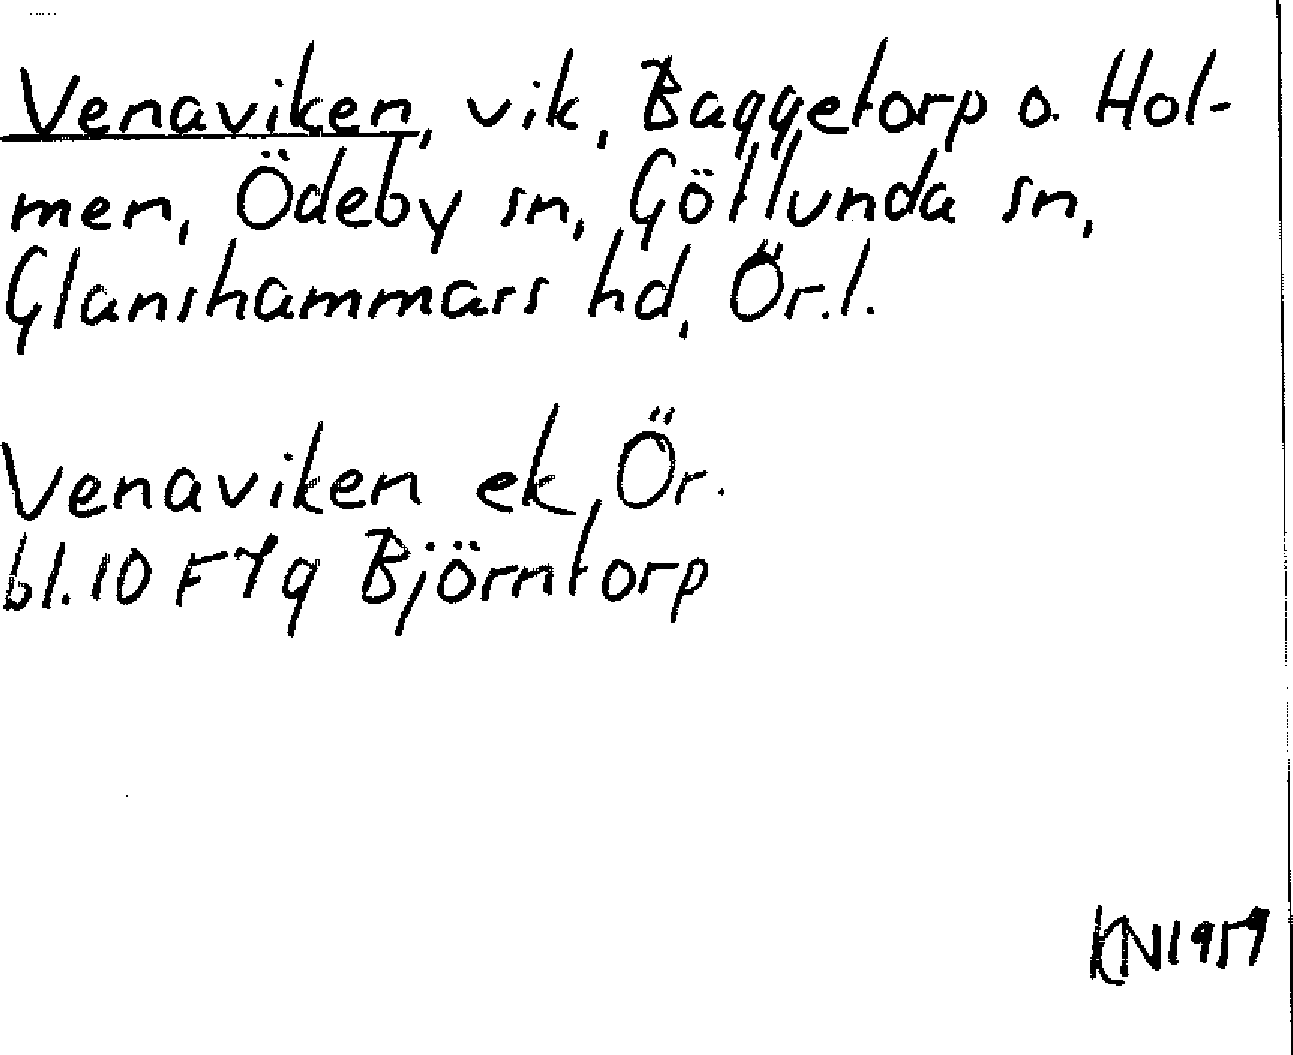 Venaviken, vik, Baggetorp o. Hol-
men, Ödeby sn, Götlunda sn,
Glanshammars hd, Ör.l.
Venaviken ek, Ör.
bl. 10 F 7g Björntorp
KN 1959